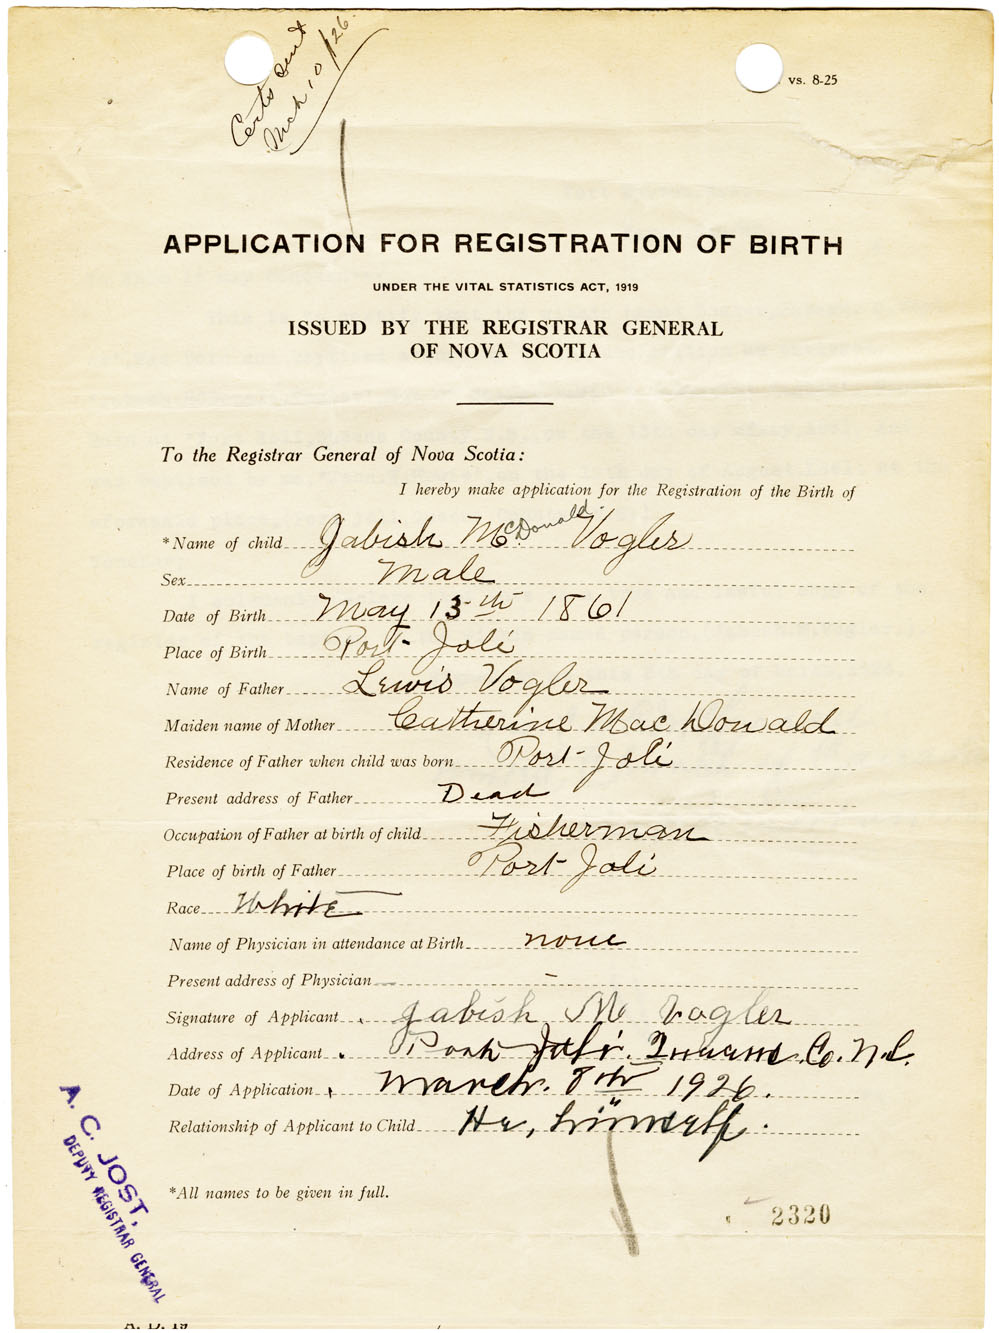 Certs sent
Mch 10/26.
vs. 8-25
APPLICATION FOR REGISTRATION OF BIRTH
UNDER THE VITAL STATISTICS ACT, 1919
ISSUED BY THE REGISTRAR GENERAL
OF NOVA SCOTIA
To the Registrar General of Nova Scotia:
I hereby make application for the Registration of the Birth of
*Name of child Jabish McDonald Vogler
Sex Male
Date of Birth May 13th 1861
Place of Birth Port Joli
Name of Father Lewis Vogler
Maiden name of Mother Catherine Mac Donald
Residence of Father when child was born Port Joli
Present address of Father Dead
Occupation of Father at birth of child Fisherman
Place of birth of Father Port Joli
Race White
Name of Physician in attendance at Birth none
Present address of Physician –
Signature of Applicant Jabish Mc Vogler
Address of Applicant Port Joli. Queens Co. N.S.
Date of Application March. 8th 1926.
Relationship of Applicant to Child He, himself.
*All names to be given in full.
2320
A. C. JOST,
DEPUTY REGISTRAR GENERAL